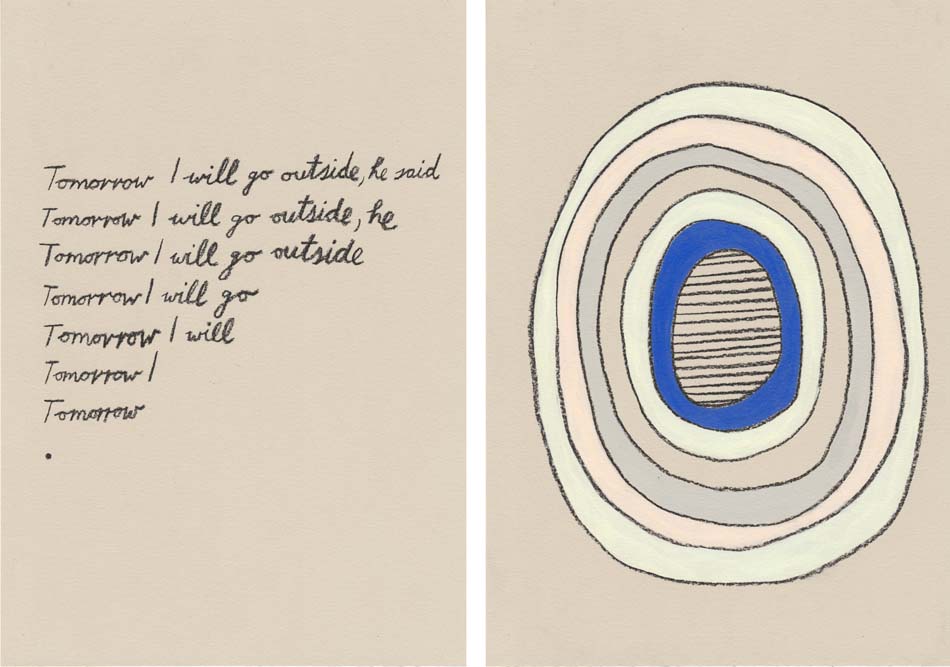 Tomorrow I will go outside, he said
Tomorrow I will go outside, he
Tomorrow I will go outside
Tomorrow I will go
Tomorrow I will
Tomorrow I
Tomorrow
.